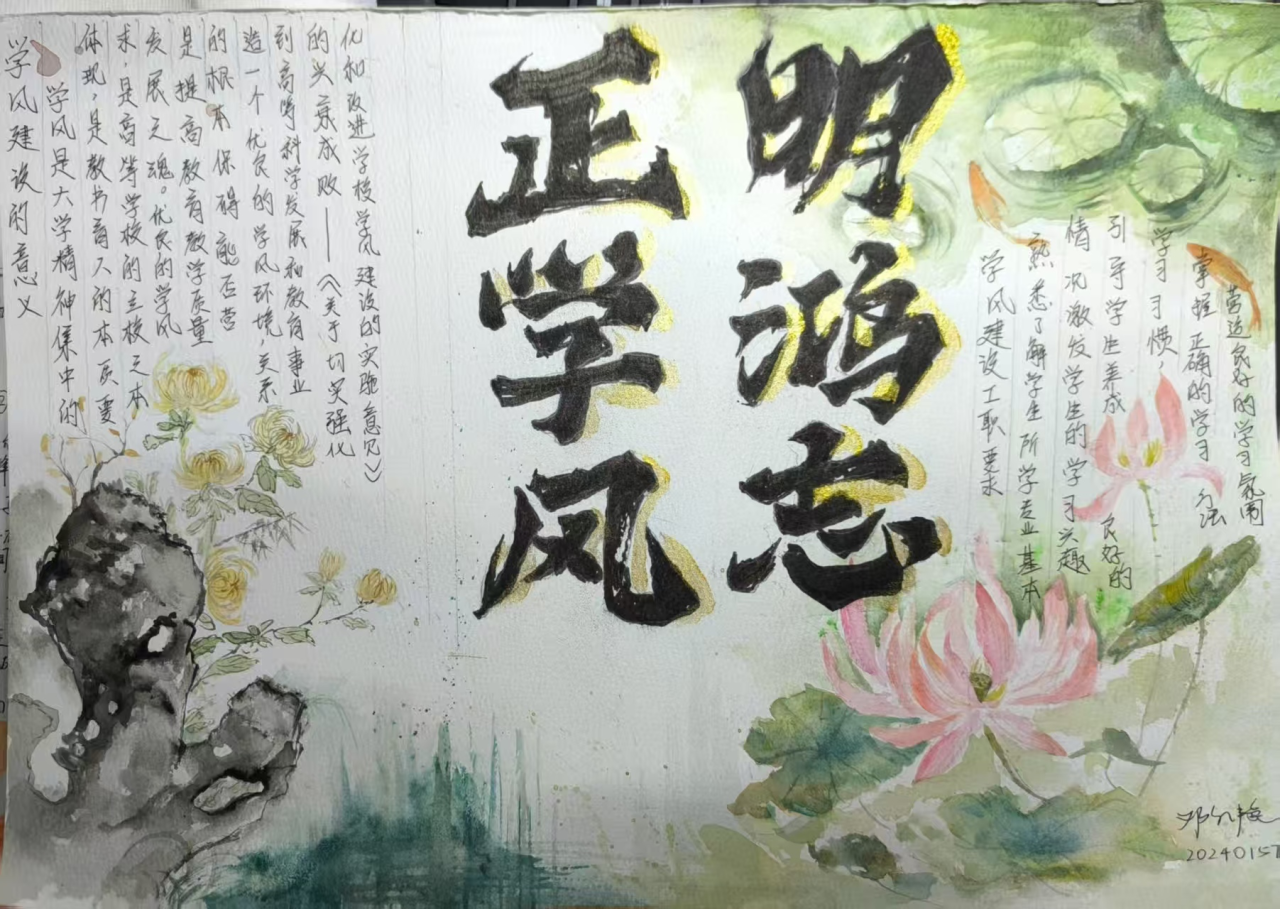 明鸿志
正学风
学风建设的意义
学风是大学精神保中的
体现,是教书育人的本质要
求,是高等学校的立校之本
发展之魂。优良的学风
是提高教育教学质量
的根本保碍能否营
造一个优良的学风环境,关系
到高等科学发展和教育事业
的兴衰成败——《关于切实强化
化和改进学校学风建设的实施意见》
学风建设工职要求
熟悉了解学生所学专业基本
情况激发学生的学习兴趣
引导学生养成 良好的
学习习惯,
掌握正确的学习
营造良好的学习氛围